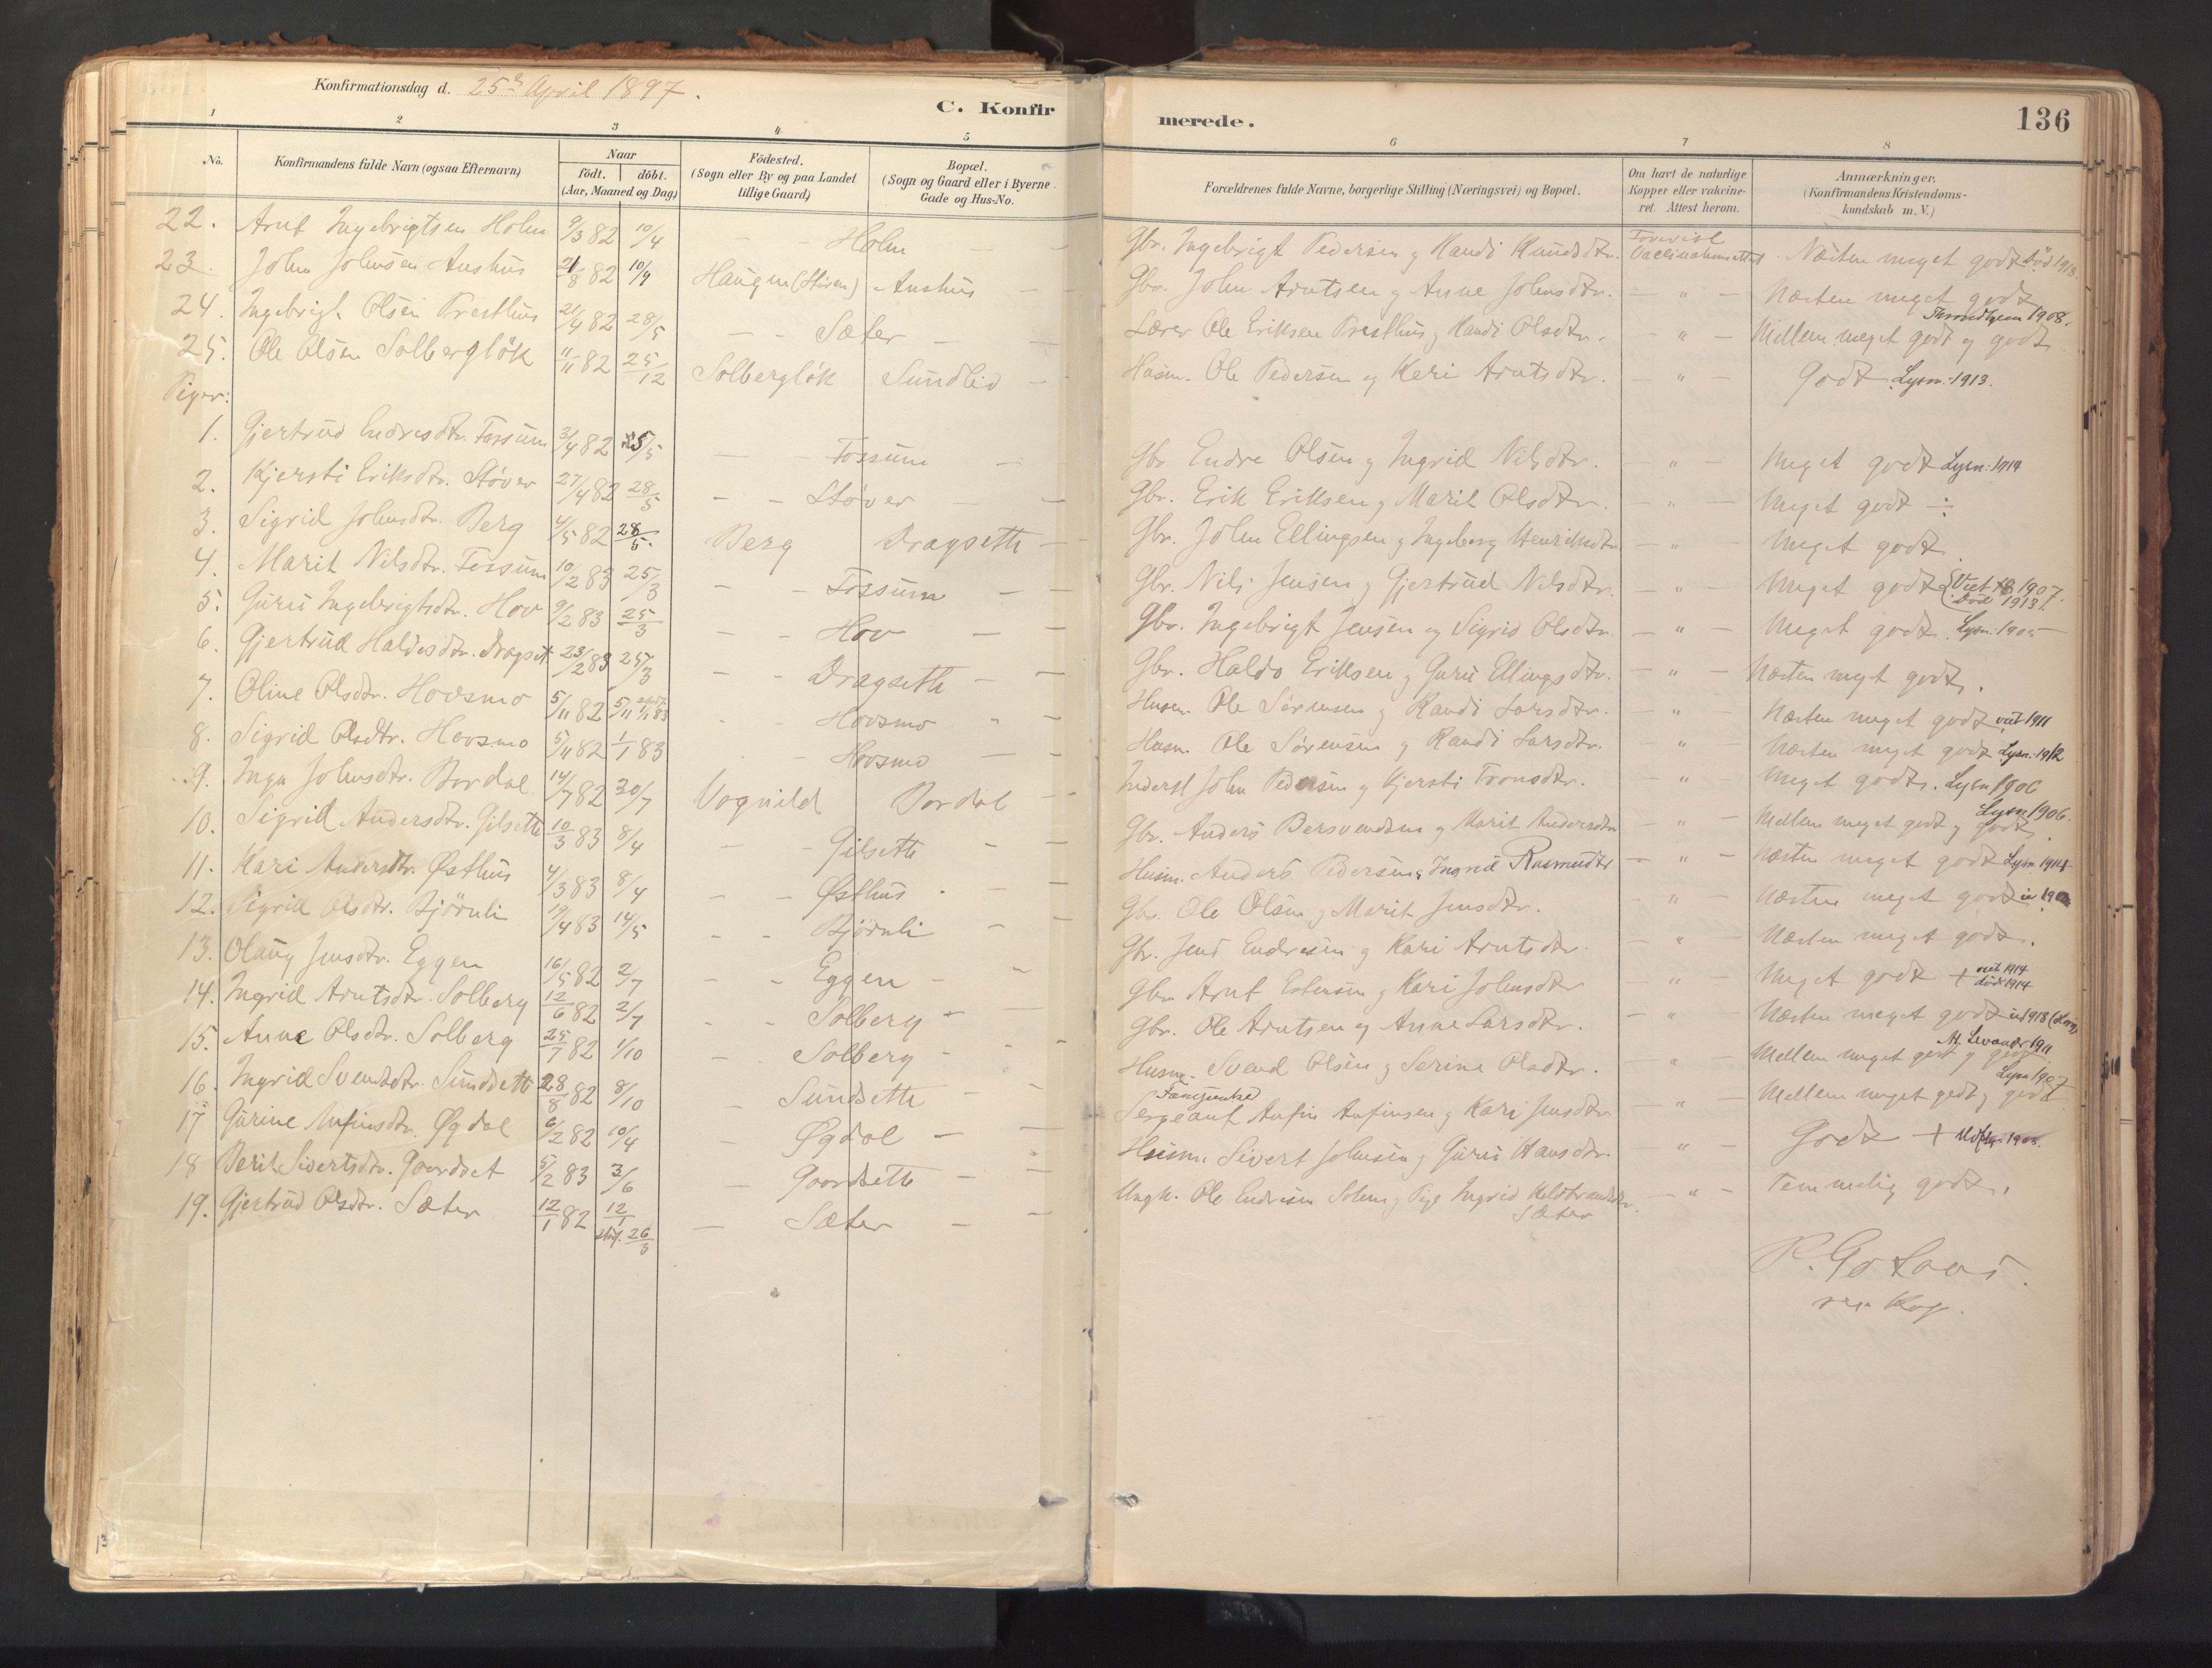 Konfirmationsdag d. 25de April 1897.
C. Konfirmerede.
136
1 2 3 4 5 6 7 8
No. Konfirmandens fulde Navn (ogsaa Efternavn) Naar født. døbt. (Aar, Maaned og Dag) Fødested. (Sogn eller By og paa Landet tillige Gaard) Bopæl. (Sogn og Gaard eller i Byerne Gade og Hus-No. Forældrenes fulde Navne, borgerlige Stilling (Næringsvei) og Bopæl. Om havt de naturlige Kopper eller vakcineret. Attest herom. Anmærkninger. (Konfirmandens Kristendomskundskab m.V.)
22. Arnt Ingebrigtsen Holm 9/3 82 10/4 - - Holm Gbr. Ingebrigt Pedersen og Randi Knudsdtr. Forevist Vaccinationsattest Næsten meget godt Død 1918
23. John Johnsen Aushus 21/8 82 10/9 Haugen (Støren) Aushus Gbr. John Arntsen og Anne Johnsdtr. - " - Næsten meget godt
24. Ingebrigt Olsen Presthus 21/4 82 28/5 - - Sæter - Lærer Ole Eriksen Presthus og Randi Olsdtr. - " - Mellem meget godt og godt Throndhjem 1908.
25. Ole Olsen Solbergløk 11/11 82 25/12 Solbergløk Sundlid Husm. Ole Pedersen og Keri Arntsdtr. - " - Godt Lysn. 1913.
Piger:
1. Gjertrud Endresdtr. Fossum 3/4 82 25/5 - - Fossum - Gbr. Endre Olsen og Ingrid Nilsdtr. - " - Meget godt Lysn. 1914
2. Kjersti Eriksdtr. Støver 27/4 82 28/5 - - Støver - Gbr. Erik Eriksen og Marit Olsdtr. - " - Meget godt ÷
3. Sigrid Johnsdtr. Berg 4/5 82 28/5 Berg Dragseth Gbr. John Ellingsen og Ingeborg Henriksdtr - " - Meget godt.
4. Marit Nilsdtr. Fossum 10/2 83 25/3 - - Fossum - Gbr. Nils Jensen og Gjertrud Nilsdtr. - " - Meget godt Viet 1907. Død 1913.
5. Guru Ingebrigtsdtr. Hov 9/2 83 25/3 - - Hov - Gbr. Ingebrigt Jensen og Sigrid Olsdtr. - " - Meget godt. Lysn. 1905
6. Gjertrud Haldosdtr. Dragset 23/2 83 25/3 - - Dragseth - Gbr. Haldo Eriksen og Guru Ellingsdtr. - " - Næsten meget godt.
7. Oline Olsdtr. Hovsmo 5/11 82 5/11 1/1 83 - - Hovsmo - Husm. Ole Sørensen og Randi Larsdtr. - " - Næsten meget godt viet 1911
8. Sigrid Olsdtr. Hovsmo 5/11 82 1/1 83 - - Hovsmo - Husm. Ole Sørensen og Randi Larsdtr. - " - Næsten meget godt Lysn. 1912
9. Inga Johnsdtr. Bordal 14/7 82 30/7 Vognild Bordal Inderst John Pedersen og Kjersti Tronsdtr. - " - Meget godt. Lysn 1906
10. Sigrid Andersdtr. Gilseth 10/3 83 8/4 - - Gilseth - Gbr. Anders Bersvendsen og Marit Andersdtr - " - Mellem meget godt og godt Lysn 1906.
11. Kari Andersdtr. Østhus 4/3 83 8/4 - - Østhus - Husm. Anders Pedersen og Ingrid Rasmusdtr - " - Næsten meget godt Lysn 1914
12. Sigrid Olsdtr. Bjørnli 19/4 83 14/5 - - Bjørnli - Gbr. Ole Olsen og Marit Jensdtr. - " - Næsten meget godt
13. Olaug Jensdtr. Eggen 16/5 82 2/7 - - Eggen - Gbr. Jens Endresen og Kari Arntsdtr. - " - Næsten meget godt.
14. Ingrid Arntsdtr. Solberg 12/6 82 2/7 - - Solberg - Gbr. Arnt Estensen og Kari Johnsdtr - " - Meget godt + viet 1914 død 1914
15. Anne Olsdtr. Solberg 25/7 82 1/10 - Solberg - Gbr. Ole Arntsen og Anne Larsdtr. - " - Næsten meget godt
16. Ingrid Svendsdtr. Sundseth 28/8 82 8/10 - Sundseth - Husm. Svend Olsen og Serine Olsdtr. - " - Mellem meget godt og godt At. Levanger 1911
17 Gurine Anfinsdtr. Øgdal 6/2 82 10/4 - Øgdal - Fanejunker Sergeant Anfin Anfinsen og Kari Jensdtr. - " - Mellem meget godt og godt Lysn 1907
18 Berit Sivertsdtr. Goordset 5/2 83 3/6 - Goordseth - Husm. Sivert Johnsen og Guru Hansdtr. - " - Godt +
19. Gjertrud Olsdtr. Sæter 12/1 82 12/1 26/3 - Sæter - Ungk. Ole Endresen Solem og Pige Ingrid Sæter - " - Temmelig godt.
P. Gotaas.
res. Kap.